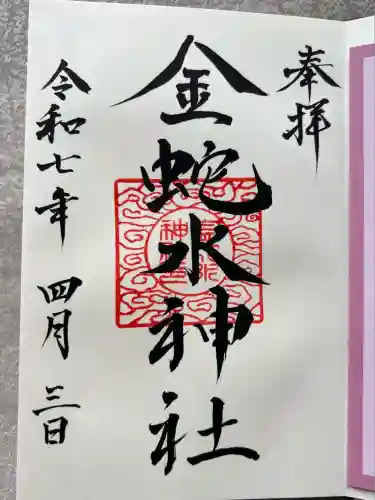 奉拝
金蛇水神社
令和七年 四月 三日